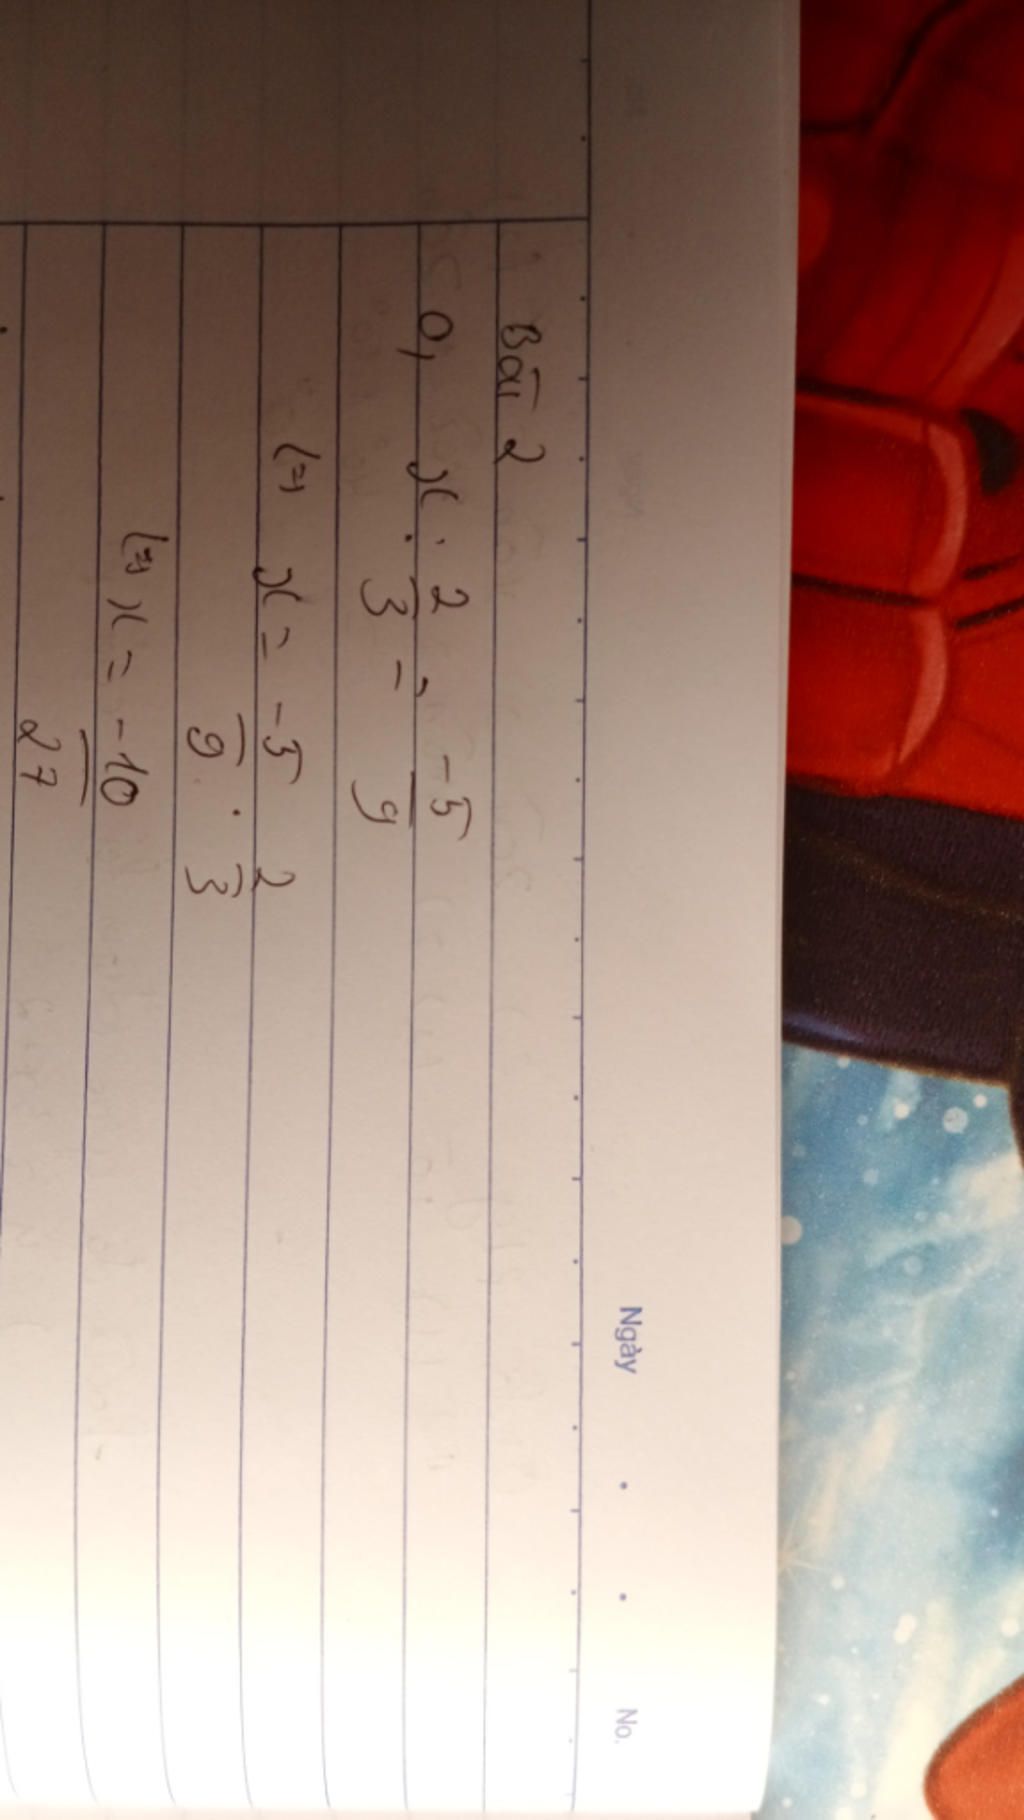 Ngày . . No.
Bài 2
a, x : 2/3 = -5/9
(=) x = -5/9 . 2/3
(=) x = -10/27